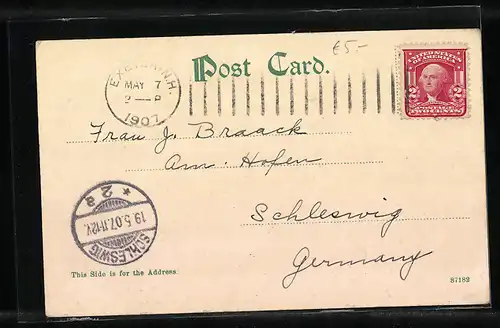 €5.-
Post Card.
EXETER, N.H.
MAY 7
2—P
1907
UNITED STATES
OF AMERICA
2 2
TWO CENTS
Frau J. Braack
Am. Hafen
Schleswig
Germany
* 2 a
19.5.07.11-12V.
SCHLESWIG
This Side is for the Address.
87182